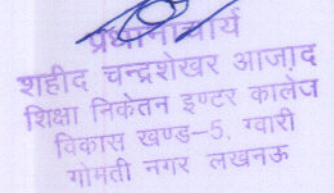 प्रधानाचार्य
शहीद चन्द्रशेखर आजाद
शिक्षा निकेतन इण्टर कालेज
विकास खण्ड-5, ग्वारी
गोमती नगर लखनऊ